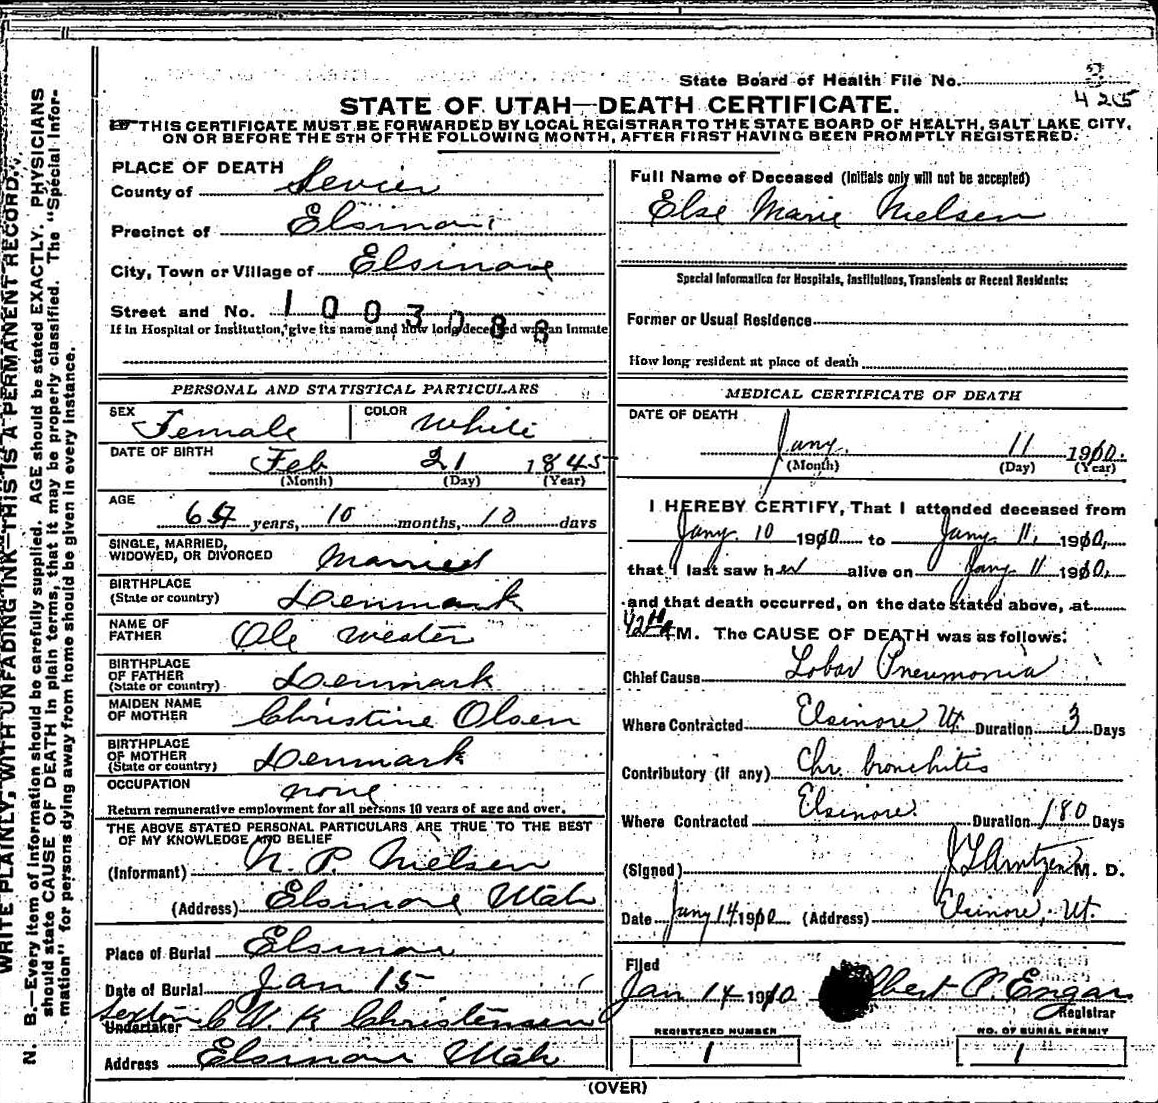 State Board of Health File No.
425
STATE OF UTAH—DEATH CERTIFICATE.
THIS CERTIFICATE MUST BE FORWARDED BY LOCAL REGISTRAR TO THE STATE BOARD OF HEALTH, SALT LAKE CITY,
ON OR BEFORE THE 5TH OF THE FOLLOWING MONTH, AFTER FIRST HAVING BEEN PROMPTLY REGISTERED.
WRITE PLAINLY, WITH UNFADING INK—THIS IS A PERMANENT RECORD.
N. B.—Every item of information should be carefully supplied. AGE should be stated EXACTLY. PHYSICIANS
should state CAUSE OF DEATH in plain terms, that it may be properly classified. The "Special Infor-
mation" for persons dying away from home should be given in every instance.
PLACE OF DEATH
County of Sevier
Precinct of Elsinore
City, Town or Village of Elsinore
Street and No. 1003088
If in Hospital or Institution, give its name and how long deceased was an Inmate
PERSONAL AND STATISTICAL PARTICULARS
SEX Female COLOR White
DATE OF BIRTH Feb 21 1845
(Month) (Day) (Year)
AGE
64 years, 10 months, 10 days
SINGLE, MARRIED,
WIDOWED, OR DIVORCED Married
BIRTHPLACE
(State or country) Denmark
NAME OF
FATHER Ole Wester
BIRTHPLACE
OF FATHER
(State or country) Denmark
MAIDEN NAME
OF MOTHER Christine Olsen
BIRTHPLACE
OF MOTHER
(State or country) Denmark
OCCUPATION none
Return remunerative employment for all persons 10 years of age and over.
THE ABOVE STATED PERSONAL PARTICULARS ARE TRUE TO THE BEST
OF MY KNOWLEDGE AND BELIEF
(Informant) N. P. Nielsen
(Address) Elsinore Utah
Place of Burial Elsinore
Date of Burial Jan 15
Sexton
Undertaker C W K Christensen
Address Elsinore Utah
Full Name of Deceased (Initials only will not be accepted)
Else Marie Nielsen
Special Information for Hospitals, Institutions, Transients or Recent Residents:
Former or Usual Residence
How long resident at place of death
MEDICAL CERTIFICATE OF DEATH
DATE OF DEATH
Jany. 11 1910.
(Month) (Day) (Year)
I HEREBY CERTIFY, That I attended deceased from
Jany 10 1910 to Jany. 11, 1910,
that I last saw her alive on Jany. 11 1910,
and that death occurred, on the date stated above, at
M. The CAUSE OF DEATH was as follows:
Chief Cause Lobar Pneumonia
Where Contracted Elsinore, Ut. Duration 3 Days
Contributory (if any) Chr. bronchitis
Where Contracted Elsinore. Duration 180 Days
(Signed) M. D.
Date Jany 14 1910 (Address) Elsinore, Ut.
Filed
Jan 14 1910 P. Engar
Registrar
REGISTERED NUMBER
1
NO. OF BURIAL PERMIT
1
(OVER)